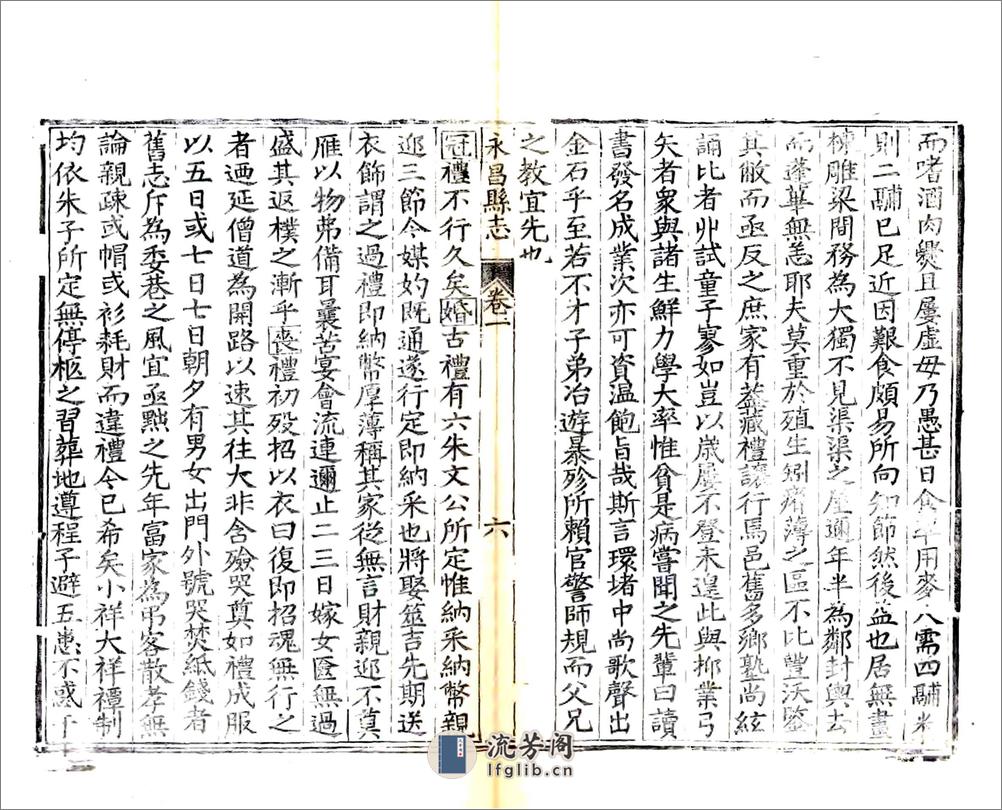 而嗜酒肉爨且屢虛毋乃愚甚日食率用麥八需四鬴米
則二鬴已足近因艱食頗易所向知節然後益也居無畫
棟雕梁閒務為大獨不見渠渠之屋邇年半為鄰封輿去
而蓬蓽無恙耶夫莫重於殖生矧瘠薄之區不比豐沃墜
其敝而亟反之庶家有蓋藏禮讓行焉邑舊多鄉塾尚絃
誦比者丱試童子寥如豈以歲屢不登未遑此與抑業弓
矢者衆與諸生鮮力學大率惟貧是病嘗聞之先輩曰讀
書發名成業次亦可資溫飽旨哉斯言環堵中尚歌聲出
金石乎至若不才子弟冶遊暴殄所賴官警師規而父兄
之教宜先也
永昌縣志 卷一 六
冠禮不行久矣婚古禮有六朱文公所定惟納采納幣親
迎三節今媒妁既通遂行定即納采也將娶筮吉先期送
衣飾謂之過禮即納幣厚薄稱其家從無言財親迎不奠
雁以物弗備耳曩苦宴會流連邇止二三日嫁女匳無過
盛其返樸之漸乎喪禮初歿招以衣曰復即招魂無行之
者廼延僧道為開路以速其往大非含殮哭奠如禮成服
以五日或七日七日朝夕有男女出門外號哭焚紙錢者
舊志斥為委巷之風宜亟黜之先年富家為弔客散孝無
論親疎或帽或衫耗財而違禮今已希矣小祥大祥禫制
均依朱子所定無停柩之習葬地遵程子避五患不惑于